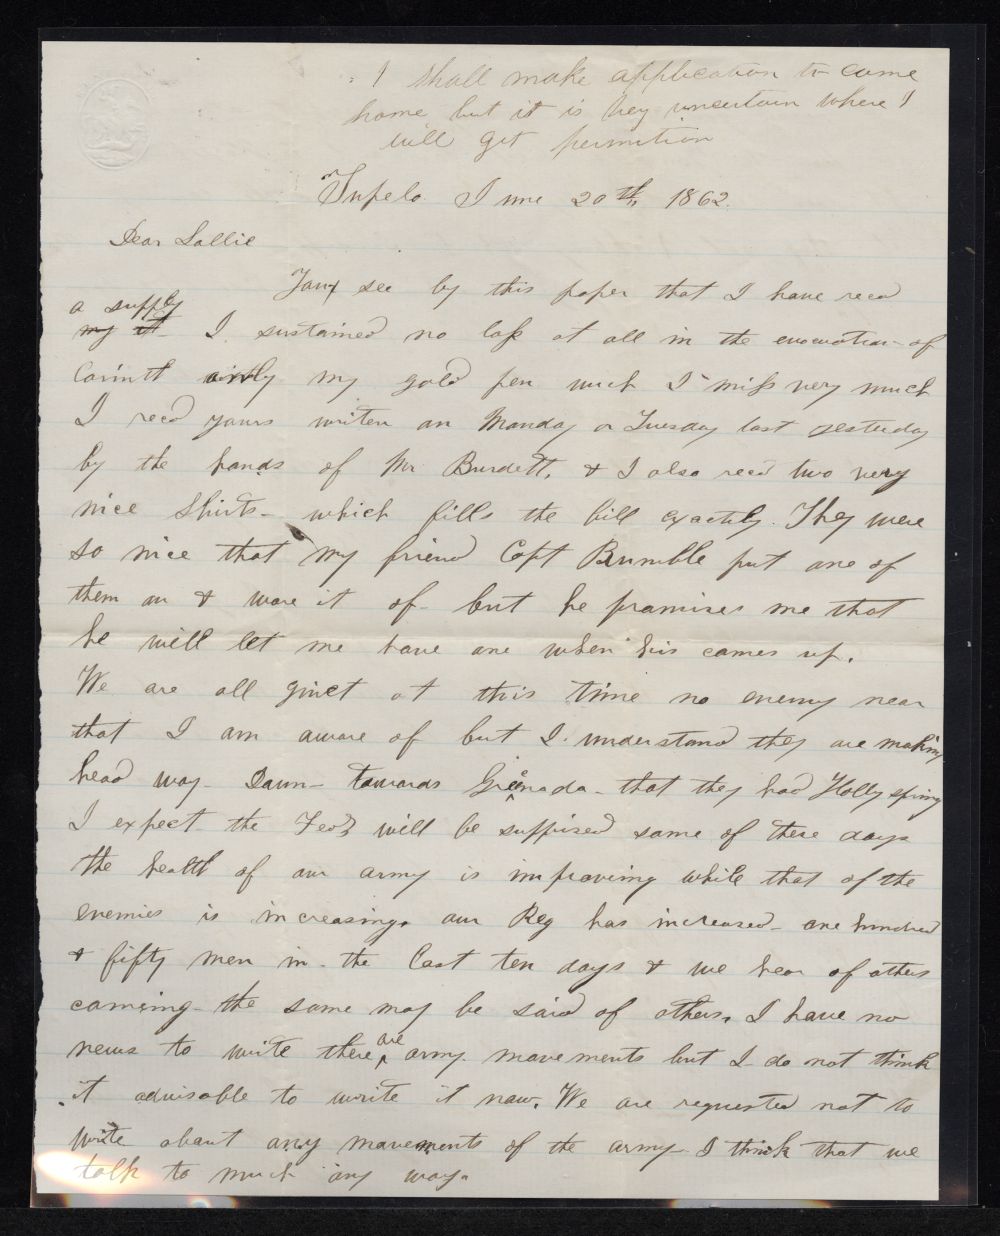 I shall make application to come
home but it is vey uncertain where I
will get permition
Tupelo June 20th, 1862.
Dear Sallie
You see by this paper that I have recd
a supply
my st I sustained no loss at all in the evacuation of
Corinth only my gold pen wich I miss very much
I recd yours writen on Monday or Tuesday last yesterday
by the hands of Mr Burdett, & I also recd two very
nice Shirts - which fills the bill exactly. They were
so nice that my friend Capt Brumble put one of
them on & wore it of - but he promises me that
he will let me have one when his comes up.
We are all quiet at this time no enemy near
that I am aware of but I understand they are making
head way Down - towards Grenada - that they had Holly spring
I expect the Feds will be suppised some of these days
the health of our army is improving while that of the
enemies is increasing. our Reg has increased one hundred
& fifty men in the last ten days & we hear of others
comeing - the same may be said of others. I have no
news to write there are army movements but I do not think
it advisable to write it now. We are requested not to
write about any movements of the army - I think that we
talk to much any way.